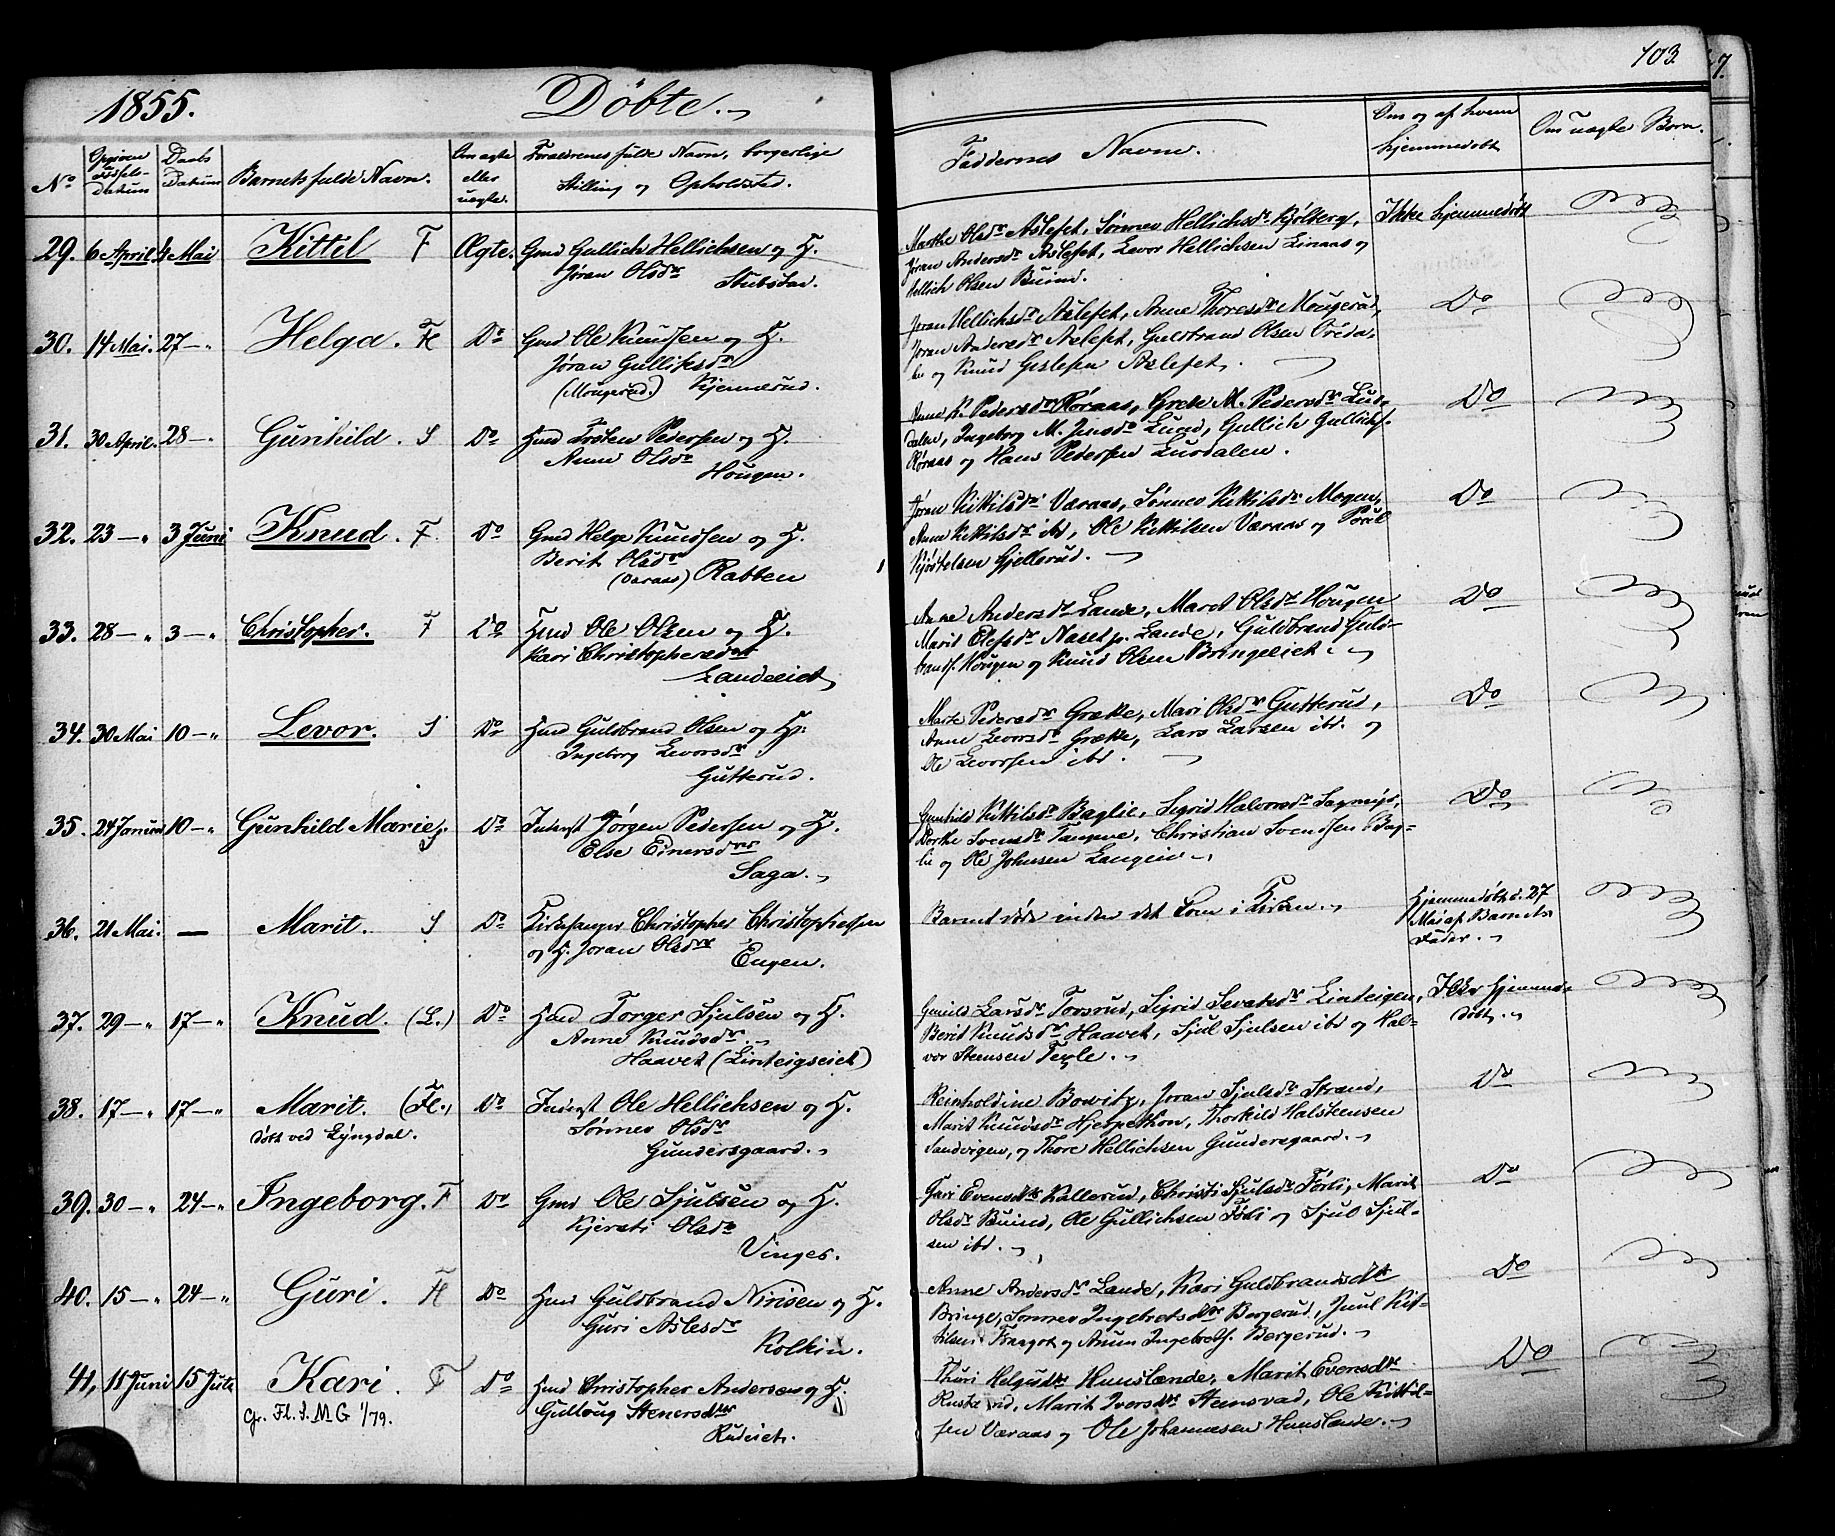 103.
1855. Döbte.
No Opgiven Fødsels-Datum Daabs Datum Barnets fulde Navn. Om ægte eller uægte. Forældrenes fulde Navn, borgerlige Stilling og Opholdsted. Faddernes Navne. Om og af hvem hjemmedøbt Om uægte Born.
29. 6 April. 4 Mai Kittil F Ægte. Gmd Gullich Hellichsen og H.
Jøran Olsdr
Stubstad.
Marthe Olsdr Aslefet, Sønnev Hellichsdr Kjølberg,
Jøran Andersdr Aslefet, Levor Hellichsen Linaas og
Hellich Olsen Buind.
Ikke hjemmedøbt
30. 14 Mai. 27 — „ Helga. Fl Do Gmd Ole Knudsen og H.
Jøran Gulliksdr
(Mougerud.) Kjennerud.
Joran Hellichsdr Aslefet, Anne Thoresdr Mougerud,
Joran Andersdr Aslefet, Guldbrand Olsen
og Knud Aslefet.
Do
31. 30 April. 28 — Gunhild. S Do Hmd Tosten Pedersen og H.
Anne Olsdr
Hougen.
Anne K. Pedersdr Røraas, Grete M. Pedersdr Lus-
dalen, Ingeborg M. Jensdr Lund, Gullich Gullichs.
Røraas og Hans Pedersen Lusdalen.
Do
32. 23 — „ 3 Juni Knud. F. Do Gmd Helge Knudsen og H.
Berit Olsdr
(Varaas) Rabben
Jøran Kittilsdr Væraas, Sønnev Kittilsdr Mogen,
Anne Kittilsdr ibd, Ole Kittilsen Væraas og Poul
Gjellerud.
Do
33. 28 — „ 3 — „ Christopher. F Do Hmd Ole Olsen og H.
Kari Christophersdatt
Landeeiet
Anne Andersdr Lande, Maret Olsdr Hougen
Marit Olefsdr Naset p. Lande, Guldbrand Guld-
brands. Hougen og Knud Olsen Bringeeiet.
Do
34. 30 Mai 10 — „ Levor. S Do Hmd Guldbrand Olsen og H.
Ingeborg Levorsdr
Gutterud.
Marte Pedersdr Grække, Mari Olsdr Gutterud,
Anne Levorsdr Grække, Lars Larsen ibd. og
Ole Levorsen ibd.
Do
35. 24 Januar 10 — „ Gunhild Marie S. Do Inderst Jørgen Pedersen og H.
Else Einersdr
Saga.
Gunhild Kittilsdr Baglie, Sigrid Halvorsdr
Dorthe Svensdr Tangene, Christian Svendsen Bag-
lie og Ole Johnsen Langeie
Do
36. 21 Mai. — Marit. S Do Kirkesanger Christopher Christophersen
og H. Joran Olsdr
Engen.
Barnet døde inden det kom i Kirken.
Hjemmedøbt d. 27
Mai af Barnets
Fader.
37. 29 — „ 17 — „ Knud. (L.) Do Hmd Torger Sjulsen og H.
Anne Knudsdr
Haavet (Linteigseiet)
Gunild Larsdr Torsrud, Sigrid Sevatsdr Linteigen,
Berit Knudsdr Haavet, Sjul Sjulsen ibd og Hal-
vor Steensen Teyle.
Ikke hjemme-
døbt.
38. 17 — „ 17 — „ Marit. (Fl.) Do Inderst Ole Hellichsen og H.
døbt ved Lyngdal. Sønnev Olsdr
Gundersgaard.
Reinholdine Bowitz, Joran Sjulsdr Strand,
Marit Knudsdr Hjerpekon, Thorkild Halstensen
Sandvigen, og Thore Hellichsen Gundersgaard.
Do
39. 30 — „ 24 — „ Ingeborg. F Do Gmd Ole Sjulsen og H.
Kjersti Olsdr
Vinges.
Gari Evensdtr Kallerud, Christi Sjulsdr Fosli, Marit
Olsdr Buind, Ole Gullichsen Fosli og Sjul Sjul-
sen ibd.
Do
40. 15 — „ 24 — „ Guri. Fl Do Hmd Guldbrand Nirisen og H.
Guri Aslesdr
Kolkin.
Anne Andersdr Lande, Kari Guldbrandsdtr
Bringe, Sonnev Ingebretsdtr Bergerud, Juul Kit-
tilsen Traagot og Anum Ingebrets. Bergerud.
Do
41, 11 Juni 15 Juli Kari. F Do Hmd Christopher Andersen og H.
Gr. Fl. S. M G 1/79. Gulloug Stenersdtr
Rudeiet.
Thuri Helgesdtr Huuslænde, Marit Evensdtr
Rusteeid, Marit Iversdtr Steensvad, Ole Kittil-
sen Væraas og Ole Johannesen Huuslænde.
Do